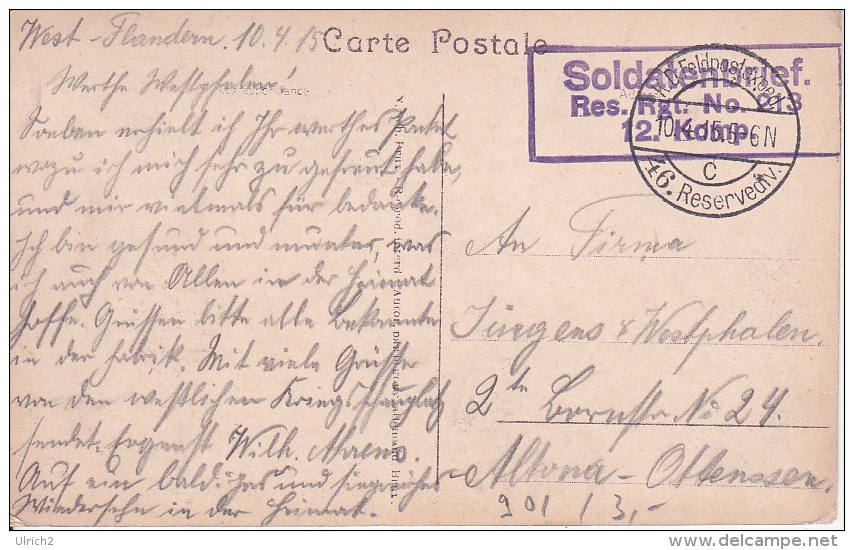 West-Flandern. 10.4.15
Carte Postale
Werthe Westphalen!
Soeben erhielt ich Ihr werthes Paket
wozu ich mich sehr zu gefreut habe,
und mir vielmals für bedanke.
Ich bin gesund und munter, was
ich auch von Allen in der Heimat
hoffe. Grüssen bitte alle Bekannte
in der Fabrik. Mit viele Grüsse
von den westlichen Kriegsschauplatz
sendet. Ergenst Wilh. Ahrens.
Auf ein baldiges und siegreiches
Wiedersehn in der Heimat.
Soldatenbrief.
Res. Rgt. No. 213
12. Komp.
K.D. Feldpostexped.
10.4.15.5-6N
c
46. Reservediv.
An Firma
Jürgens & Westphalen.
2te Bornstr No 24.
Altona-Ottensen.
901 / 3,-
© Ulrich2
delcampe.net